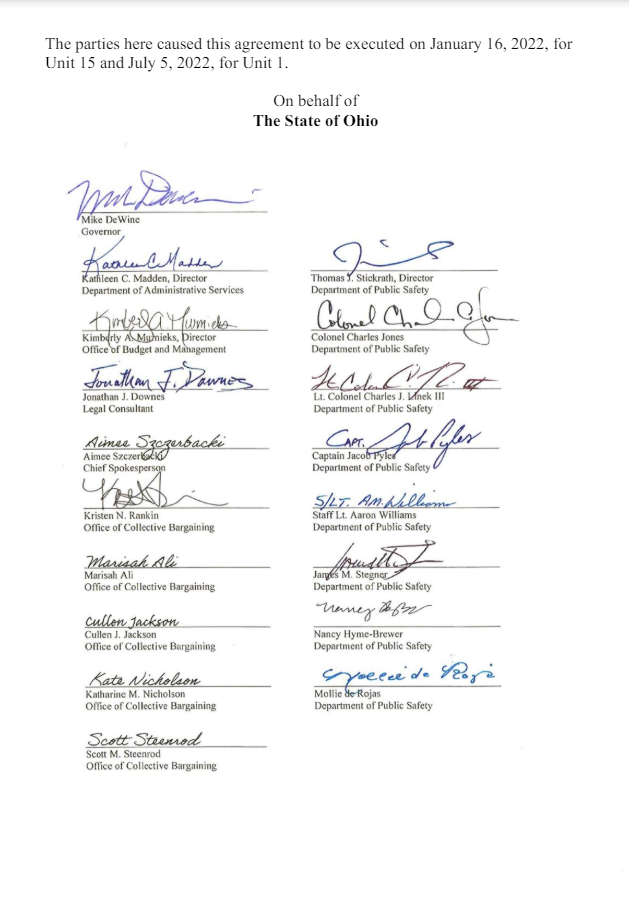 The parties here caused this agreement to be executed on January 16, 2022, for
Unit 15 and July 5, 2022, for Unit 1.
On behalf of
The State of Ohio
Mike DeWine
Governor
Kathleen C. Madden
Kathleen C. Madden, Director
Department of Administrative Services
Kimberly A. Murnieks
Kimberly A. Murnieks, Director
Office of Budget and Management
Jonathan J. Downes
Jonathan J. Downes
Legal Consultant
Aimee Szczerbacki
Aimee Szczerbacki
Chief Spokesperson
Kristen N. Rankin
Office of Collective Bargaining
Marisah Ali
Marisah Ali
Office of Collective Bargaining
Cullen Jackson
Cullen J. Jackson
Office of Collective Bargaining
Kate Nicholson
Katharine M. Nicholson
Office of Collective Bargaining
Scott Steenrod
Scott M. Steenrod
Office of Collective Bargaining
Thomas J. Stickrath, Director
Department of Public Safety
Colonel
Colonel Charles Jones
Department of Public Safety
Lt. Colonel Charles J. Linek III
Department of Public Safety
CAPT. Pyles
Captain Jacob Pyles
Department of Public Safety
S/LT. A.M. Williams
Staff Lt. Aaron Williams
Department of Public Safety
James M. Stegner
Department of Public Safety
Nancy
Nancy Hyme-Brewer
Department of Public Safety
de Rojas
Mollie de Rojas
Department of Public Safety